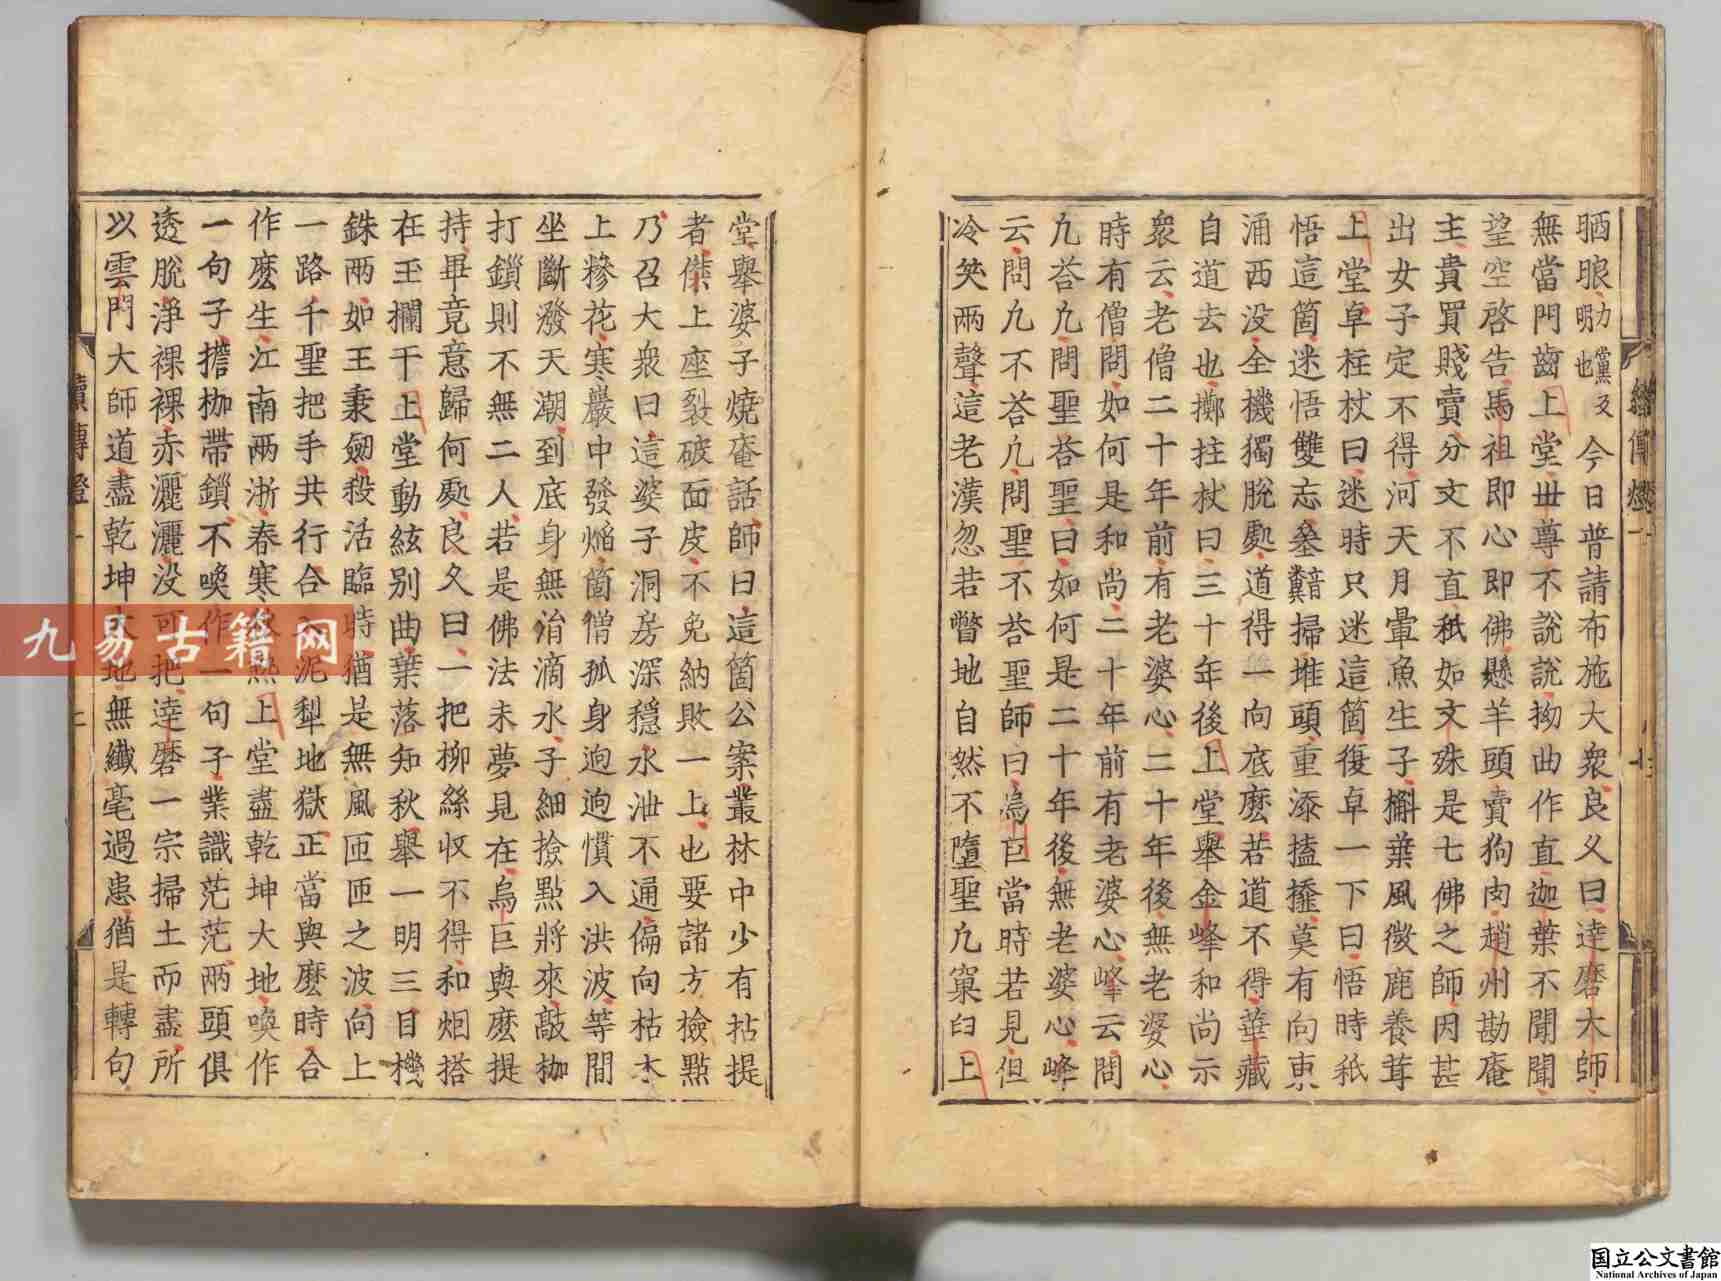 晒眼力黨反明也今日普請布施大衆良久曰達磨大師
無當門齒上堂世尊不說說拗曲作直迦葉不聞聞
望空啓告馬祖即心即佛懸羊頭賣狗肉趙州勘庵
主貴買賤賣分文不直秖如文殊是七佛之師因甚
出女子定不得河天月暈魚生子槲葉風微鹿養茸
上堂卓柱杖曰迷時只迷這箇復卓一下曰悟時秖
悟這箇迷悟雙忘糞掃堆頭重添搕𢶍莫有向東
涌西没全機獨脫處道得一向底麽若道不得華藏
自道去也擲拄杖曰三十年後上堂舉金峰和尚示
衆云老僧二十年前有老婆心二十年後無老婆心
時有僧問如何是和尚二十年前有老婆心峰云問
凢荅凢問聖荅聖曰如何是二十年後無老婆心峰
云問凢不荅凢問聖不荅聖師曰烏巨當時若見但
冷笑兩聲這老漢忽若瞥地自然不墮聖凢窠臼上
堂舉婆子燒庵話師曰這箇公案叢林中少有拈提
者傑上座裂破面皮不免納敗一上也要諸方撿點
乃召大衆曰這婆子洞房深穩水泄不通偏向枯木
上糝花寒巖中發焰箇僧孤身迥迥慣入洪波等閒
坐斷潑天潮到底身無涓滴水子細撿點將來敲枷
打鎖則不無二人若是佛法未夢見在烏巨與麽提
持畢竟意歸何處良久曰一把柳絲收不得和烟搭
在玉欄干上堂動絃别曲葉落知秋舉一明三目機
銖兩如王秉劒殺活臨時猶是無風匝匝之波向上
一路千聖把手共行合泥犁地獄正當與麽時合
作麽生江南兩浙春寒熱上堂盡乾坤大地喚作
一句子擔枷帶鎖不喚作一句子業識茫茫兩頭俱
透脫淨裸裸赤灑灑没可把達磨一宗掃土而盡所
以雲門大師道盡乾坤大地無纖毫過患猶是轉句
續傳燈
九易古籍网
国立公文書館
National Archives of Japan